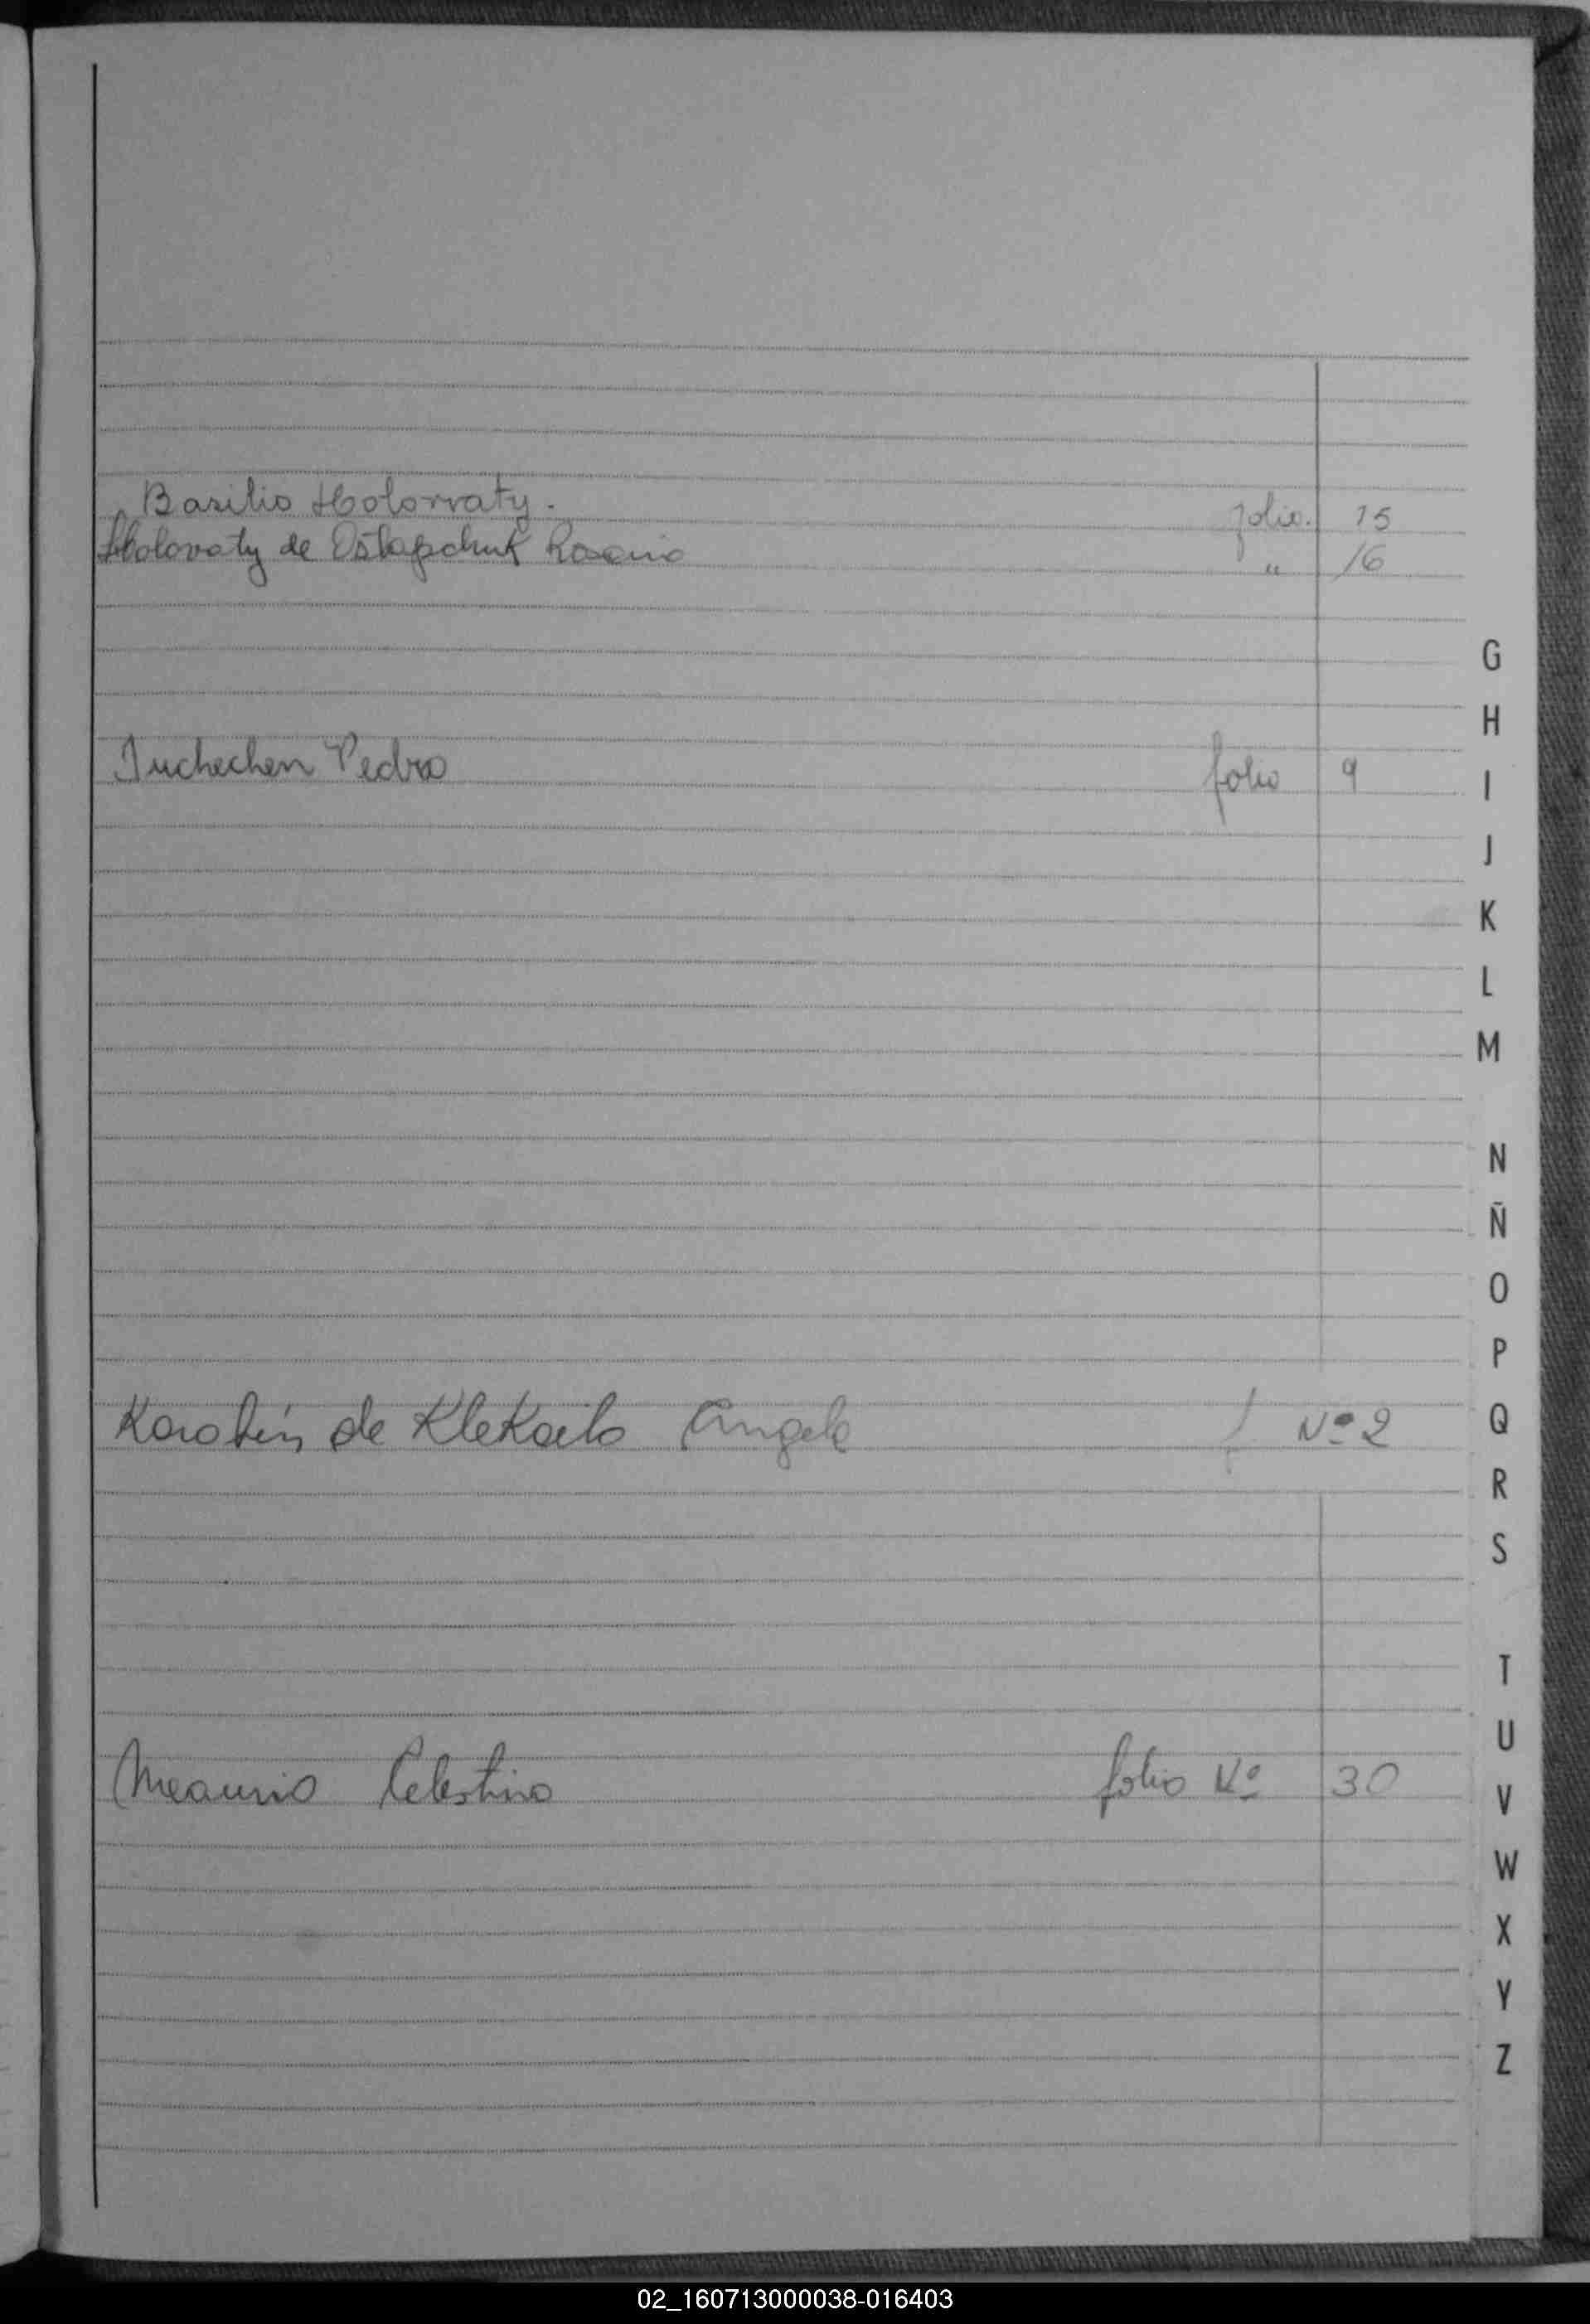 Basilio Holovvaty. folio. 15
Holovaty de Ostapchuk " 16
G
H
Juchechen Pedro folio 9
I
J
K
L
M
N
Ñ
O
P
de Klekailo Angela f Nº 2
Q
R
S
T
U
Meaurio Celestino folio Nº 30
V
W
X
Y
Z
02_160713000038-016403